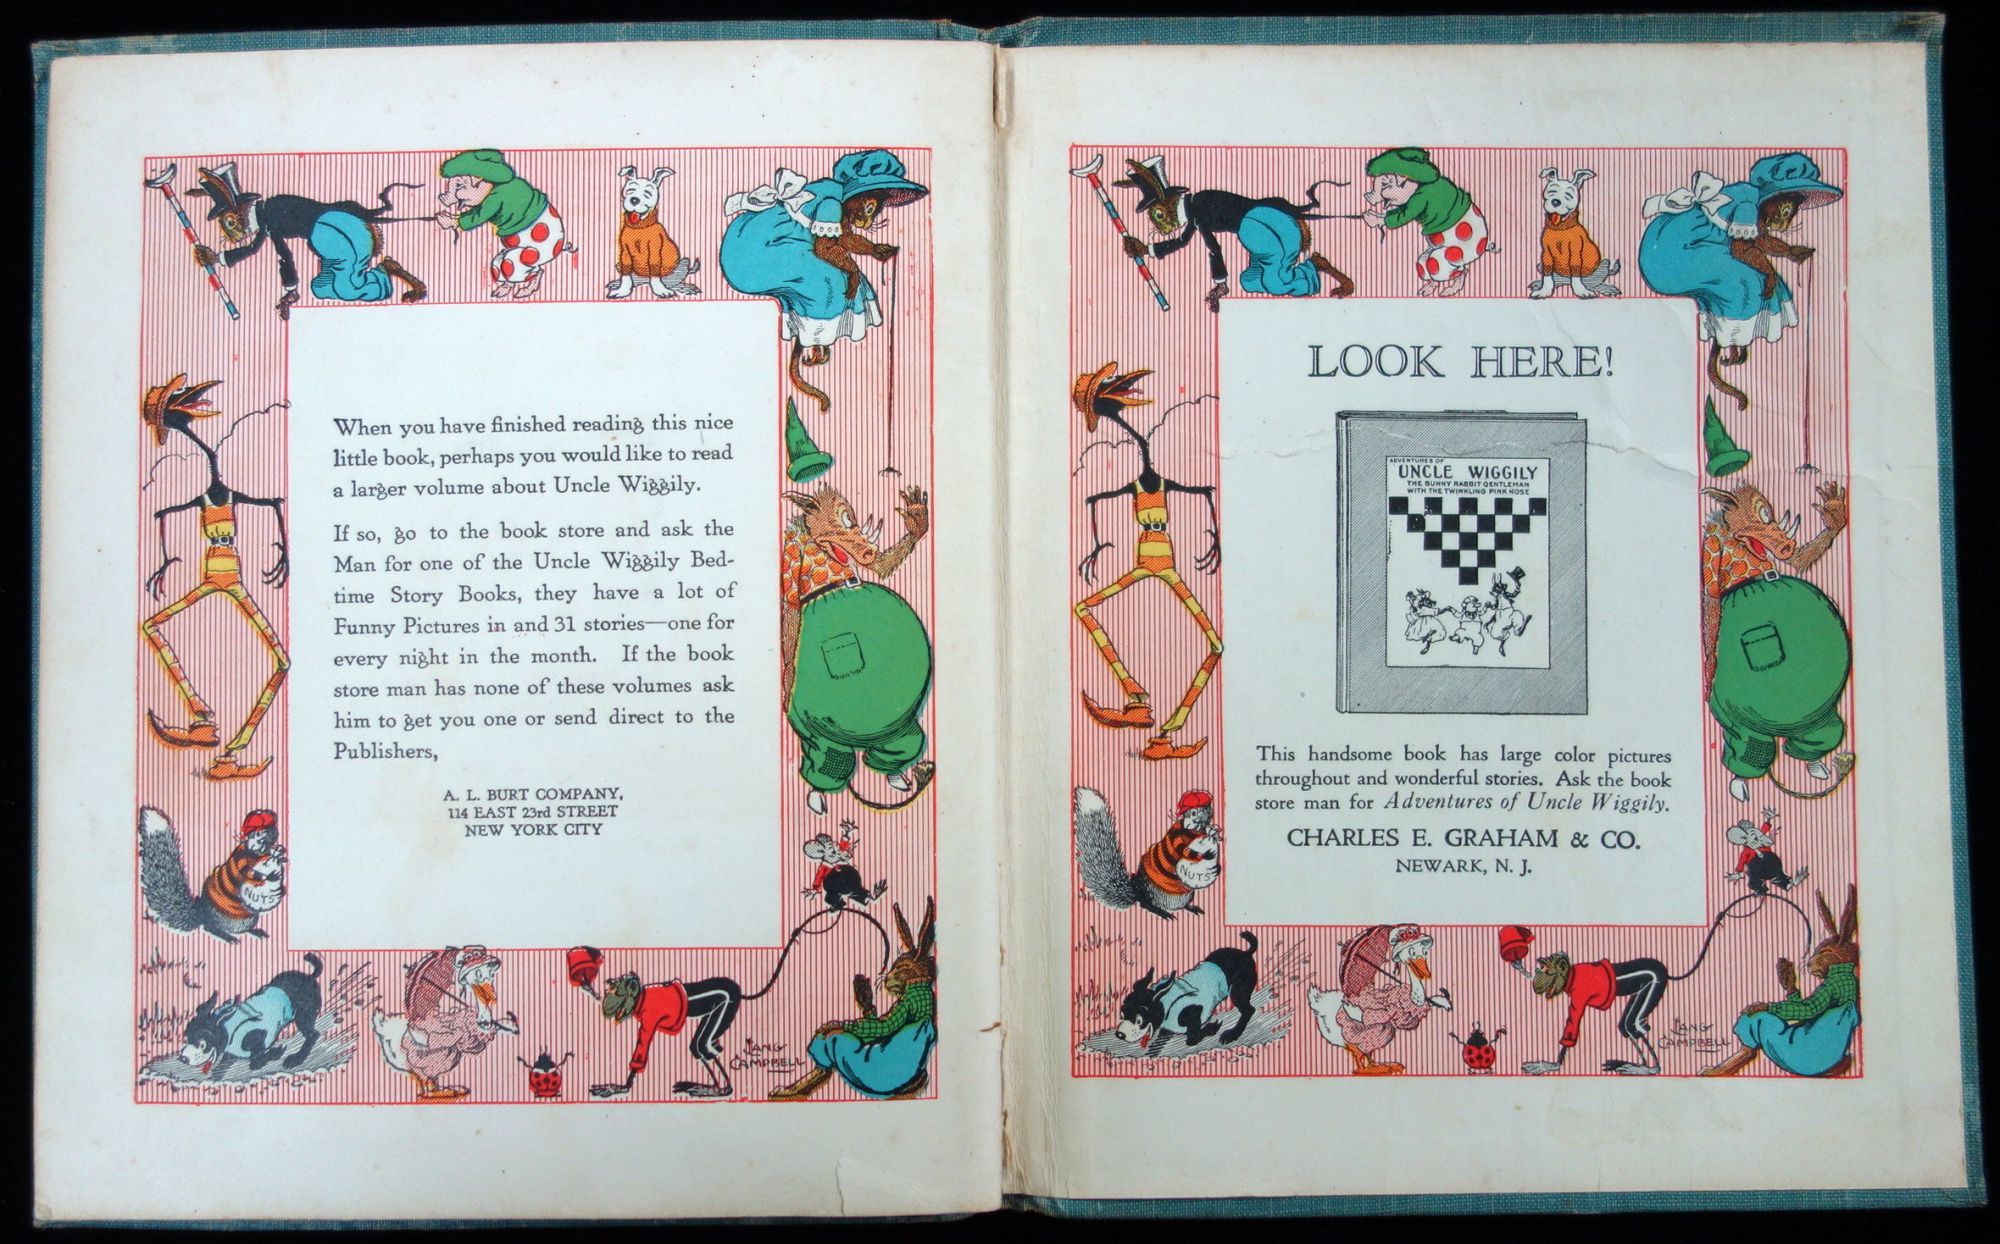 When you have finished reading this nice
little book, perhaps you would like to read
a larger volume about Uncle Wiggily.
If so, go to the book store and ask the
Man for one of the Uncle Wiggily Bed-
time Story Books, they have a lot of
Funny Pictures in and 31 stories—one for
every night in the month. If the book
store man has none of these volumes ask
him to get you one or send direct to the
Publishers,
A. L. BURT COMPANY,
114 EAST 23rd STREET
NEW YORK CITY
NUTS
LANG
CAMPBELL
LOOK HERE!
ADVENTURES OF
UNCLE WIGGILY
THE BUNNY RABBIT GENTLEMAN
WITH THE TWINKLING PINK NOSE
This handsome book has large color pictures
throughout and wonderful stories. Ask the book
store man for Adventures of Uncle Wiggily.
CHARLES E. GRAHAM & CO.
NEWARK, N. J.
NUTS
LANG
CAMPBELL